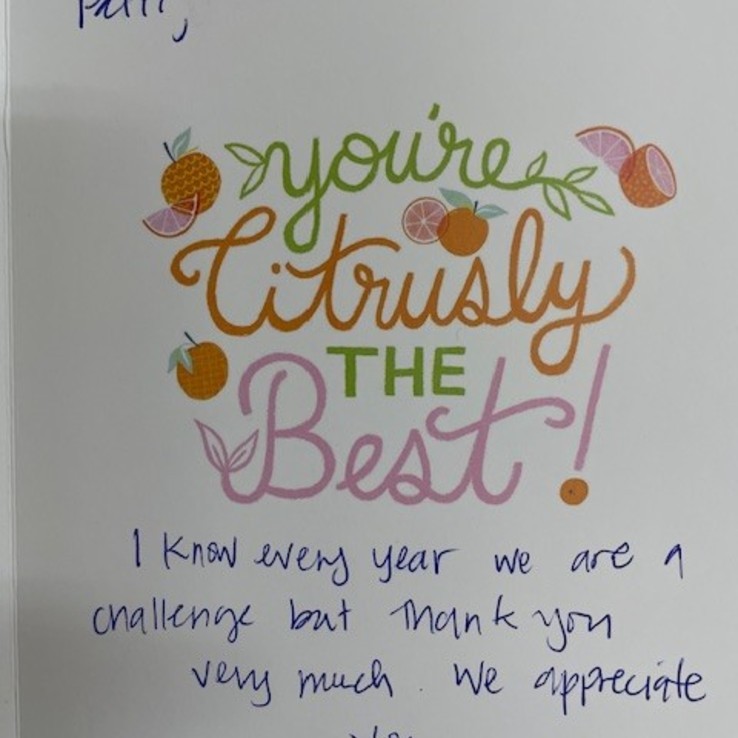 Patti,
you're
Citrusly
THE
Best!
I know every year we are a
challenge but thank you
very much. We appreciate